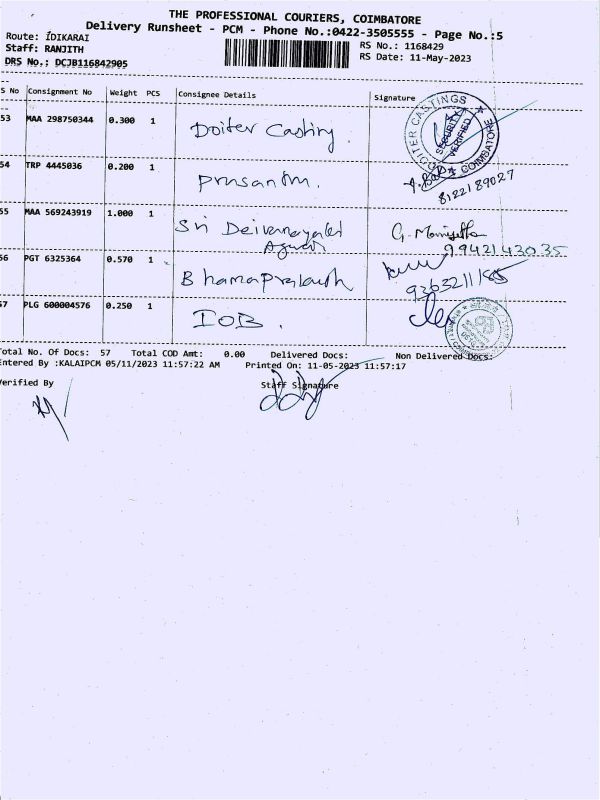 THE PROFESSIONAL COURIERS, COIMBATORE
Delivery Runsheet - PCM - Phone No.:0422-3505555 - Page No.:5
Route: ÍDIKARAI
RS No.: 1168429
Staff: RANJITH
RS Date: 11-May-2023
DRS No.: DCJB116842905
S No Consignment No Weight PCS Consignee Details Signature
53 MAA 298750344 0.300 1 Doiter Casting.
DOITER CASTINGS COIMBATORE
SECURITY VERIFIED
54 TRP 4445036 0.200 1 Prasanth.
8122189027
55 MAA 569243919 1.000 1 Sri Deivanayaki
9942143035
56 PGT 6325364 0.570 1 Bhamaprakash
57 PLG 600004576 0.250 1 IOB.
Total No. Of Docs: 57 Total COD Amt: 0.00 Delivered Docs: Non Delivered Docs:
Entered By :KALAIPCM 05/11/2023 11:57:22 AM Printed On: 11-05-2023 11:57:17
Verified By Staff Signature